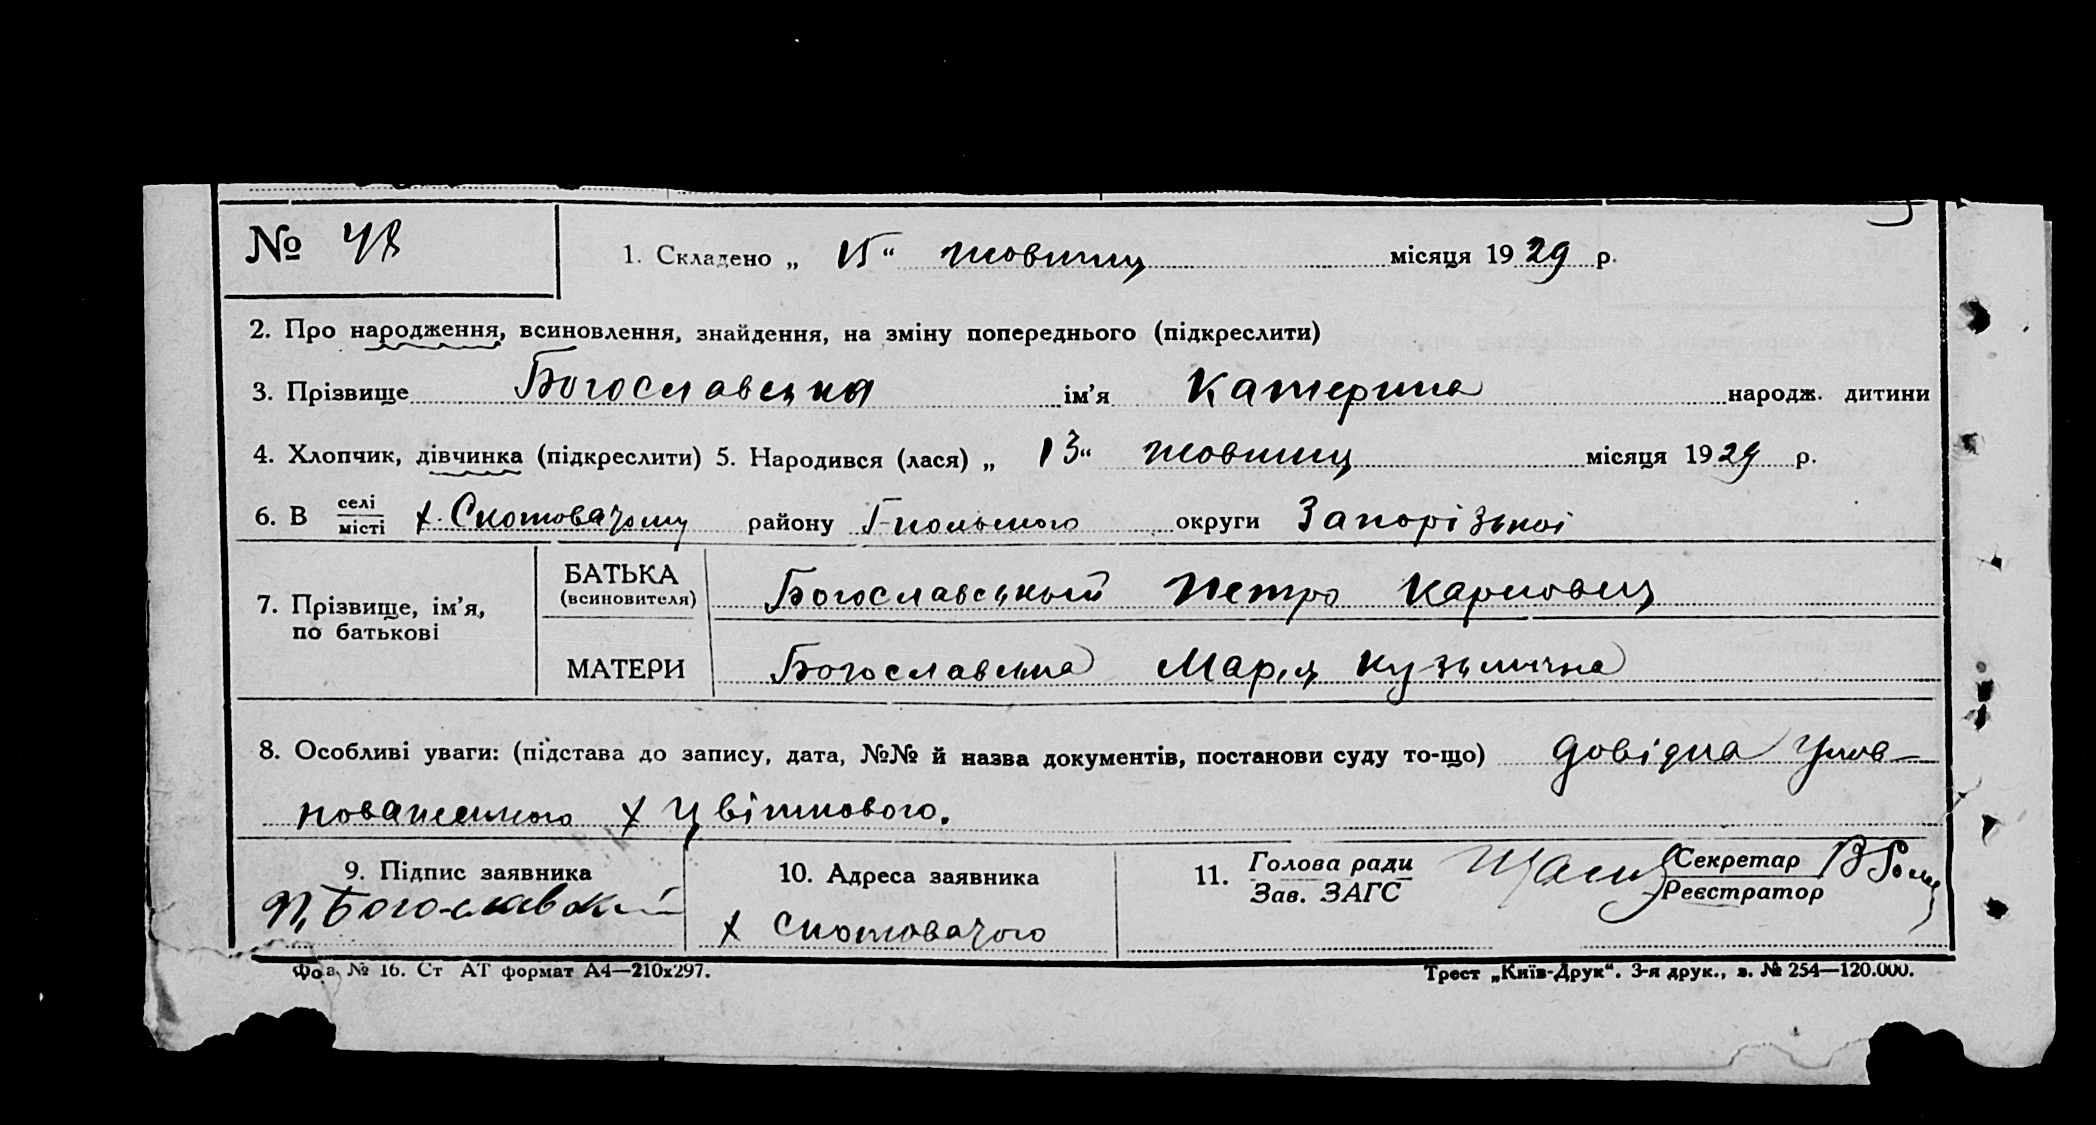 № 48
1. Складено „15“ жовтня місяця 1929 р.
2. Про народження, всиновлення, знайдення, на зміну попереднього (підкреслити)
3. Прізвище Богославська ім’я Катерина народж. дитини
4. Хлопчик, дівчинка (підкреслити) 5. Народився (лася) „13“ жовтня місяця 1929 р.
6. В селі
місті х. Скотоватому району Г-польського округи Запорізької
7. Прізвище, ім’я,
по батькові
БАТЬКА
(всиновителя)
Богославський Петро Карпович
МАТЕРИ
Богославська Марія Кузьмічна
8. Особливі уваги: (підстава до запису, дата, №№ й назва документів, постанови суду то-що) довідка Упов-
новаженного х Цвіткового.
9. Підпис заявника
П. Богославский
10. Адреса заявника
х Скотоватого
11. Голова ради
Зав. ЗАГС
Секретар
Реєстратор
№ 16. Ст АТ формат А4—210x297.
Трест „Київ-Друк“. 3-я друк., з. № 254—120.000.